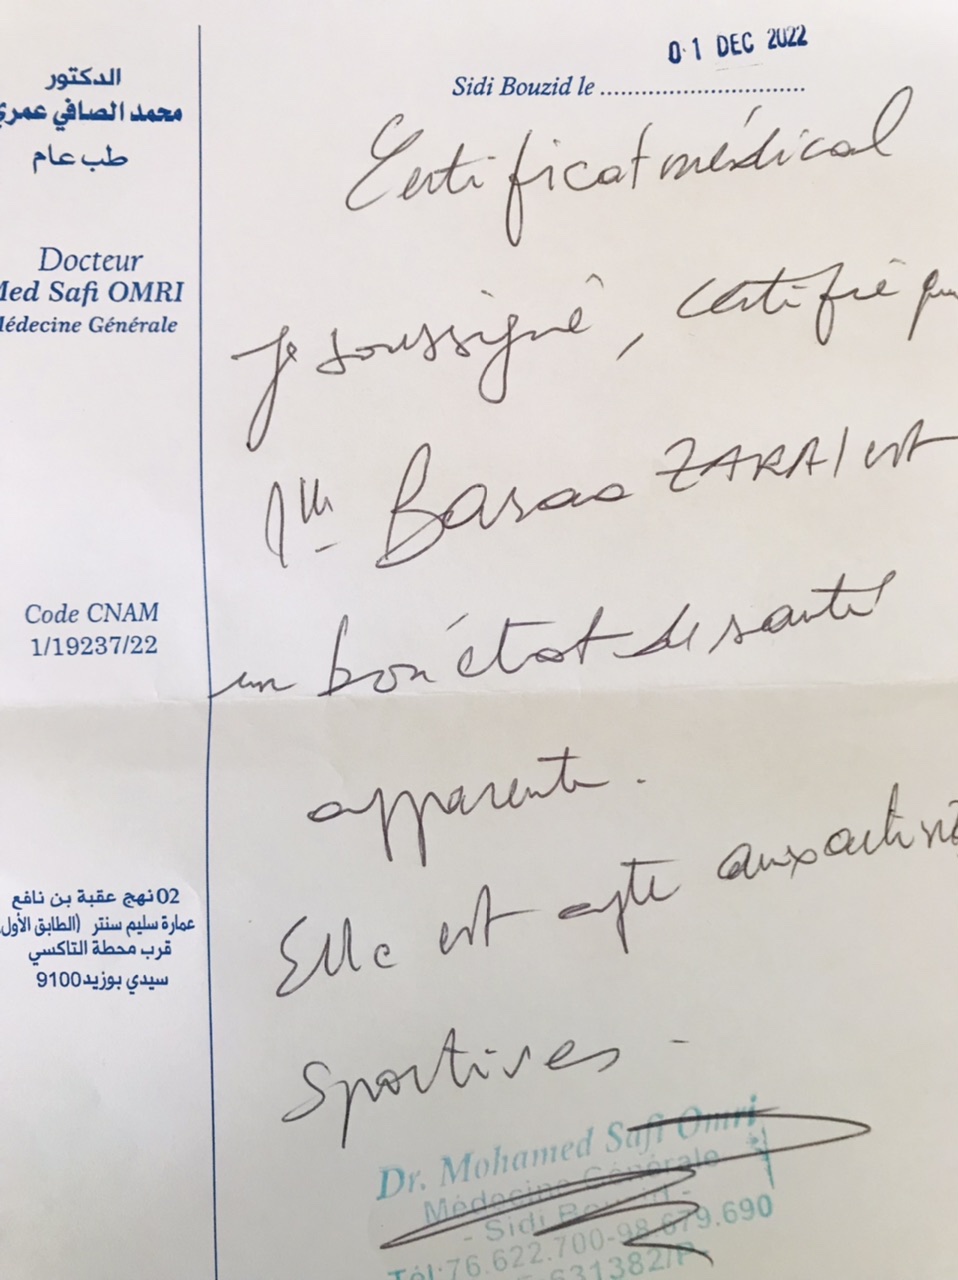 الدكتور
محمد الصافي عمري
طب عام
Docteur
Med Safi OMRI
Médecine Générale
Code CNAM
1/19237/22
02 نهج عقبة بن نافع
عمارة سليم سنتر (الطابق الأول
قرب محطة التاكسي
سيدي بوزيد 9100
01 DEC 2022
Sidi Bouzid le ..............................
Certificat médical
Je soussigné, certifie que
Mlle ZARAI est
en bon état de santé
apparente.
Elle est apte aux activités
Sportives -
Dr. Mohamed Safi Omri
Médecine Générale
- Sidi Bouzid -
Tél:76.622.700-98.679.690
631382/P-